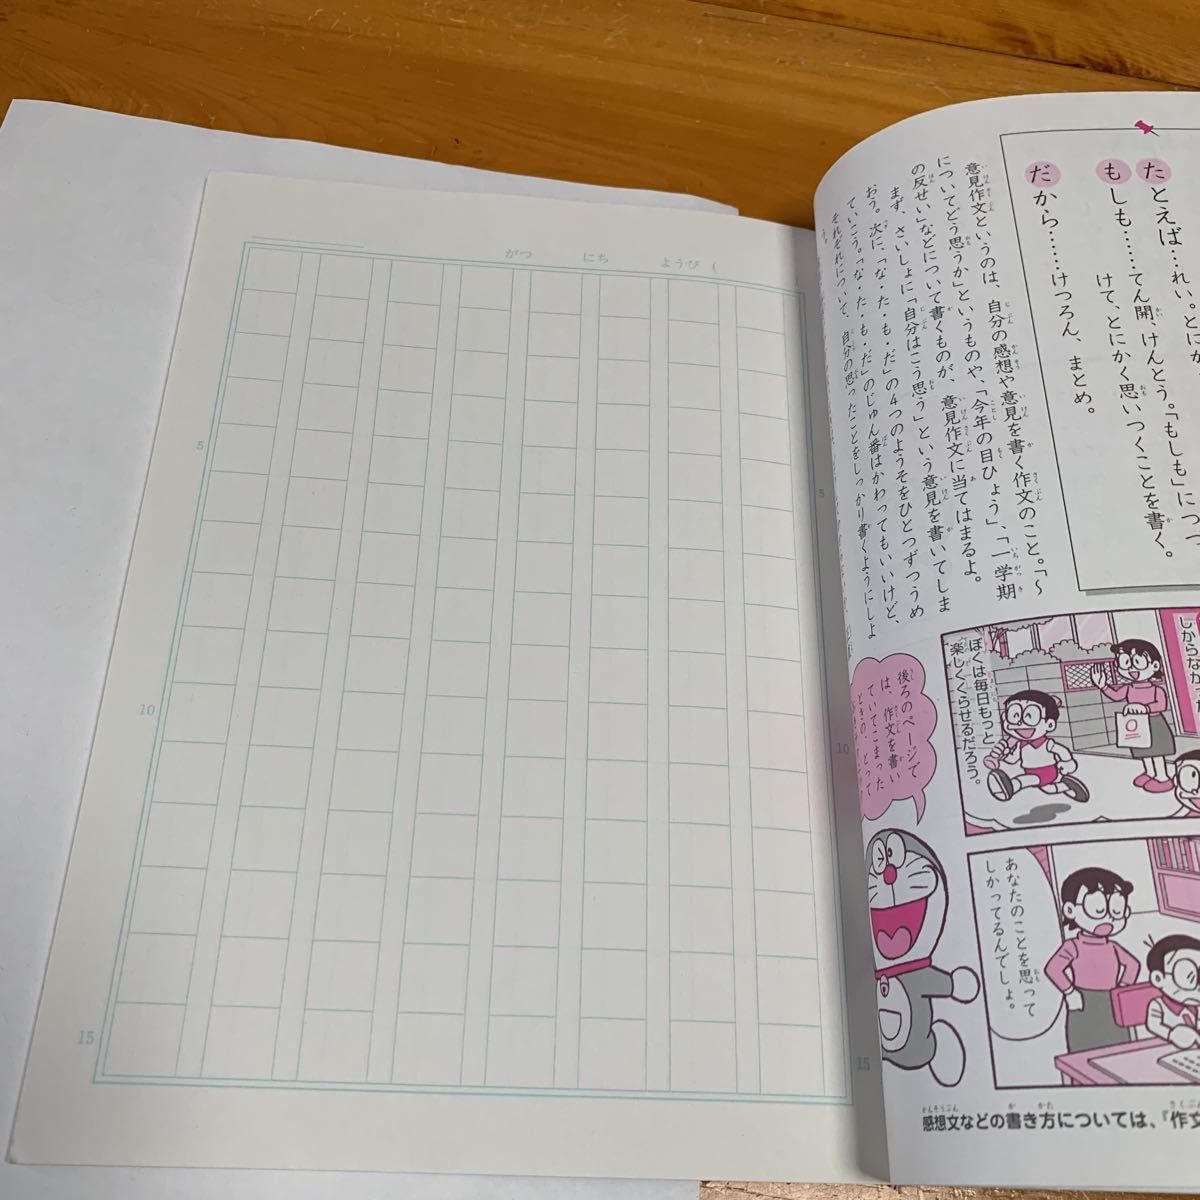 がつ にち ようび (
5
10
15
5
10
15
たとえば…れい。とにか
もしも……てん開、けんとう。「もしも」につ
けて、とにかく思いつくことを書く。
だから……けつろん、まとめ。
意見作文というのは、自分の感想や意見を書く作文のこと。「〜
についてどう思うか」というものや、「今年の目ひょう」、「一学期
の反せい」などについて書くものが、意見作文に当てはまるよ。
まず、さいしょに「自分はこう思う」という意見を書いてしま
おう。次に、「な・た・も・だ」の4つのようそをひとつずつうめ
ていこう。「な・た・も・だ」のじゅん番はかわってもいいけど、
それぞれについて、自分の思ったことをしっかり書くようにしよ
う。
しからなか
ぼくは毎日もっと
楽しくくらせるだろう。
後ろのページで
は、作文を書い
ていてこまった
ときの、とって
あなたのことを思って
しかってるんでしょ。
感想文などの書き方については、『作文